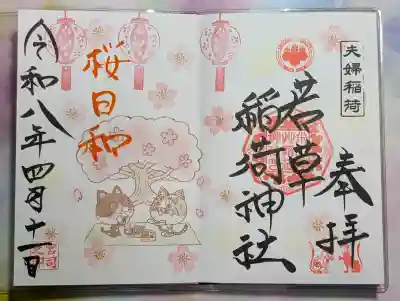 夫婦稲荷
奉拝
若草
稲荷神社
桜日和
令和八年四月十一日